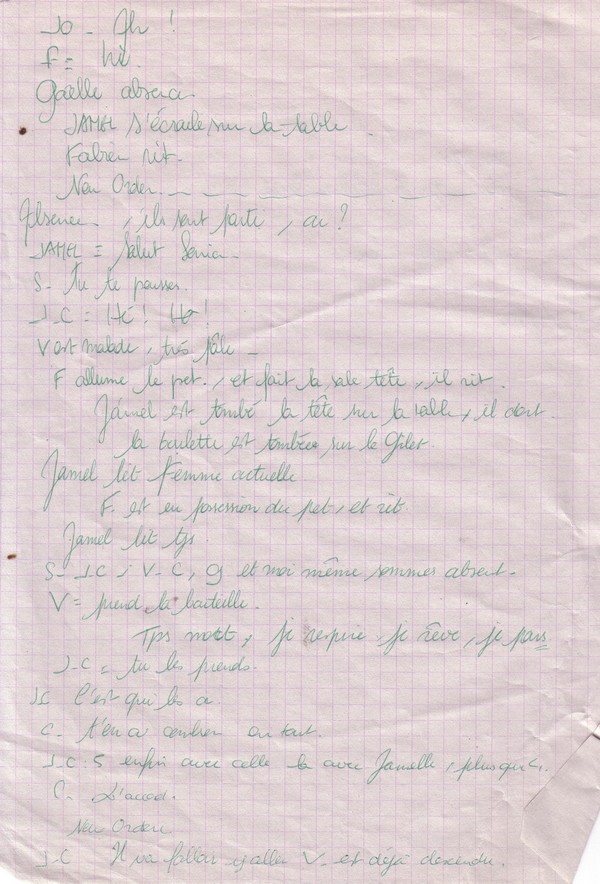 Jo - Ah !
F = hi.
Gaëlle absence.
JAMEL s'écroule sur la table.
Fabien rit.
New Order.
Absence. , ils sont partie, ou ?
JAMEL = Salut Sonia.
S - Tu te pousses.
J-C = Hé ! Ho !
V est malade, très pâle -
F allume le pet., et fait la sale tête, il rit.
Jamel est tombé la tête sur la table, il dort.
la boulette est tombée sur le Gilet.
Jamel lit Femme actuelle
F. est en possession du pet, et rit.
Jamel lit tjs.
S - J-C : V - C, G et moi même sommes absent -
V = prend la bouteille.
Tps mort, je respire, je rêve, je pars
J-C = tu les prends.
C'est qui les a.
C - T'en a combien en tout.
J-C : 5 enfin avec celle la avec Jamelle, plus que 4.
C - D'accod.
New Ordere
J-C Il va falloir y aller V - est déjà descendu.